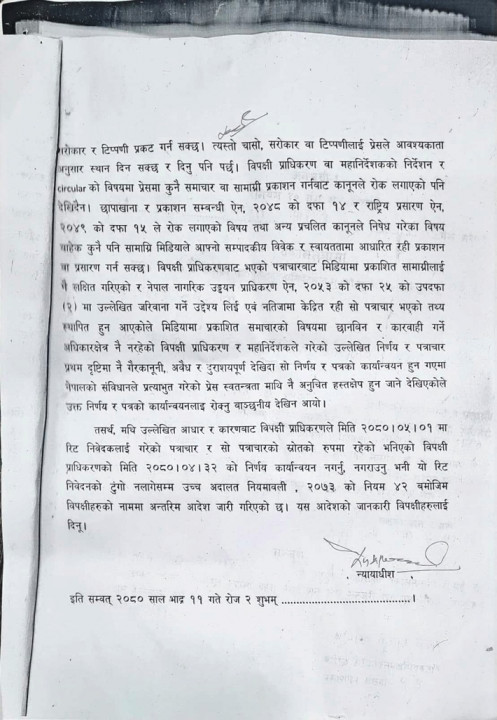 सरोकार र टिप्पणी प्रकट गर्न सक्छ। त्यस्तो चासो, सरोकार वा टिप्पणीलाई प्रेसले आवश्यकता
अनुसार स्थान दिन सक्छ र दिनु पनि पर्छ। विपक्षी प्राधिकरण वा महानिर्देशकको निर्देशन र
circular को विषयमा प्रेसमा कुनै समाचार वा सामाग्री प्रकाशन गर्नबाट कानूनले रोक लगाएको पनि
देखिदैन। छापाखाना र प्रकाशन सम्बन्धी ऐन, २०४८ को दफा १४ र राष्ट्रिय प्रसारण ऐन,
२०४९ को दफा १५ ले रोक लगाएको विषय तथा अन्य प्रचलित कानूनले निषेध गरेका विषय
बाहेक कुनै पनि सामाग्रि मिडियाले आफ्नो सम्पादकीय विवेक र स्वायतत्तामा आधारित रही प्रकाशन
वा प्रसारण गर्न सक्छ। विपक्षी प्राधिकरणबाट भएको पत्राचारबाट मिडियामा प्रकाशित सामाग्रीलाई
नै लक्षित गरिएको र नेपाल नागरिक उड्डयन प्राधिकरण ऐन, २०५३ को दफा २५ को उपदफा
(२) मा उल्लेखित जरिवाना गर्ने उद्देश्य लिई एवं नतिजामा केद्रित रही सो पत्राचार भएको तथ्य
स्थापित हुन आएकोले मिडियामा प्रकाशित समाचारको विषयमा छानविन र कारवाही गर्ने
अधिकारक्षेत्र नै नरहेको विपक्षी प्राधिकरण र महानिर्देशकले गरेको उल्लेखित निर्णय र पत्राचार
प्रथम दृष्टिमा नै गैरकानूनी, अवैध र दुराशयपूर्ण देखिदा सो निर्णय र पत्रको कार्यान्वयन हुन गएमा
नेपालको संविधानले प्रत्याभुत गरेको प्रेस स्वतन्त्रता माथि नै अनुचित हस्तक्षेप हुन जाने देखिएकोले
उक्त निर्णय र पत्रको कार्यान्वयनलाइ रोक्नु वाञ्छनीय देखिन आयो।
तसर्थ, मथि उल्लेखित आधार र कारणबाट विपक्षी प्राधिकरणले मिति २०८०।०५।०१ मा
रिट निवेदकलाई गरेको पत्राचार र सो पत्राचारको स्रोतको रुपमा रहेको भनिएको विपक्षी
प्राधिकरणको मिति २०८०।०४।३२ को निर्णय कार्यान्वयन नगर्नु, नगराउनु भनी यो रिट
निवेदनको टुंगो नलागेसम्म उच्च अदालत नियमावली , २०७३ को नियम ४२ बमोजिम
विपक्षीहरुको नाममा अन्तरिम आदेश जारी गरिएको छ। यस आदेशको जानकारी विपक्षीहरुलाई
दिनू।
न्यायाधीश
इति सम्वत् २०८० साल भाद्र ११ गते रोज २ शुभम् ..........................................।